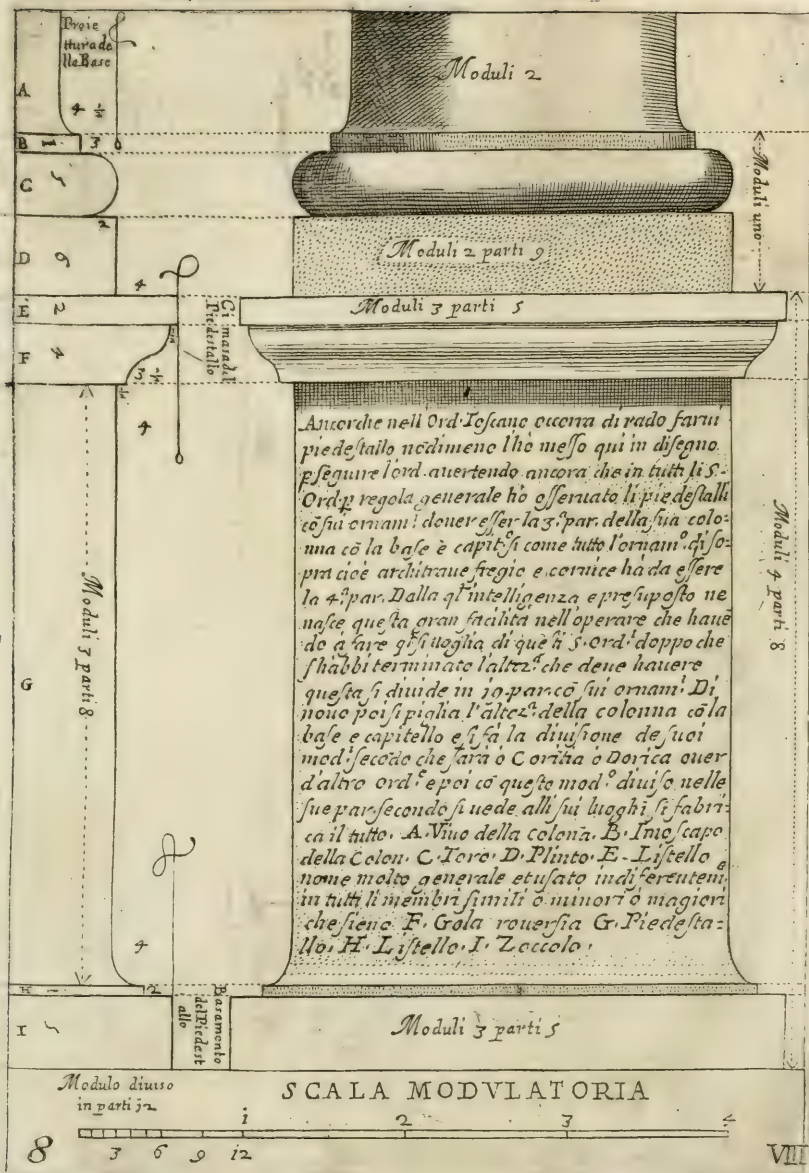 Proie
ttura de
lla Base
A
4 ½
B 1 3
C 5
2
D 6
4
E 2
F 4
3 ½
4
Cimasa del
Piedestallo
Moduli 2
Moduli uno
Moduli 2 parti 9
Moduli 3 parti 5
Ancorche nell'Ord. Toscano occorra di rado farui
piedestallo nōdimeno l'ho messo qui in disegno
p seguire l'ord. auertendo ancora che in tutti li 5.
Ord. p regola generale ho osseruato li piedestalli
cō sui ornam.ti douer esser la 3.ª par. della sua colo-
nna cō la base è capit.º si come tutto l'ornam.º di so-
pra cioè architraue fregio e cornice hà da essere
la 4.ª par. Dalla ql' intelligenza e presuposto ne
nasce questa gran facilità nell'operare che hauē
do à fare ql si uoglia di questi 5. Ord.i doppo che
s'habbi terminato l'altez.ª che deue hauere
questa si diuide in 19. par. cō sui ornam.ti Di
nouo poi si piglia l'altez.ª della colonna cō la
base e capitello e si fà la diuisione de suoi
mod.i secōdo che sarà ò Corītia ò Dorica ouer
d'altro ord.e e poi cō questo mod.º diuiso nelle
sue par. secondo si uede alli sui luoghi si fabri-
ca il tutto. A. Viuo della colōna. B. Imoscapo
della Colon. C. Toro. D. Plinto. E. Listello
nome molto generale et usato indiferentem.e
in tutti li membri simili ò minori ò magiori
che sieno F. Gola rouersia G. Piedesta-
llo. H. Listello. I. Zoccolo.
Moduli 4 parti 8
Moduli 3 parti 8
G
4
H 1 2
I 5
Basamento
del Piedest
allo
Moduli 3 parti 5
Modulo diuiso
in parti 12
SCALA MODVLATORIA
1 2 3 4
3 6 9 12
8
VIII